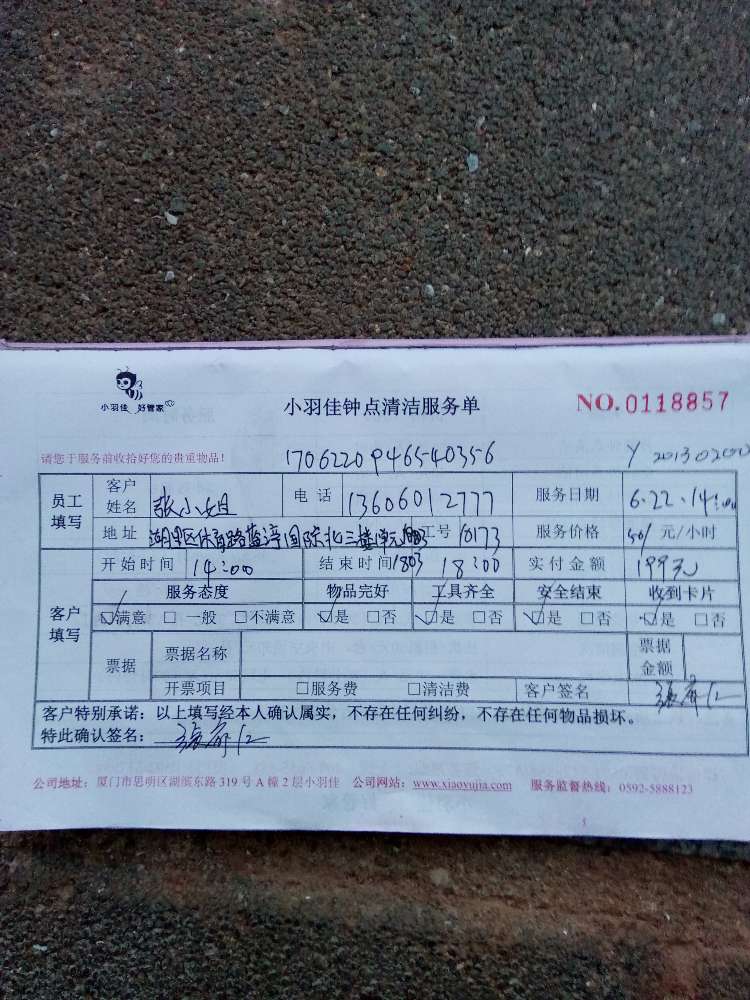 小羽佳 好管家
小羽佳钟点清洁服务单 NO.0118857
请您于服务前收拾好您的贵重物品! 170622094654035​6
员工填写 客户姓名 张小姐 电话 13606012777 服务日期 6.22.14:00
地址 湖里区体育路 国际北三楼 1803 工号 10173 服务价格 50/ 元/小时
客户填写 开始时间 14:00 结束时间 18:00 实付金额 199元
服务态度 物品完好 工具齐全 安全结束 收到卡片
☑满意 □一般 □不满意 ☑是 □否 ☑是 □否 ☑是 □否 ☑是 □否
票据 票据名称 票据金额
开票项目 □服务费 □清洁费 客户签名
客户特别承诺：以上填写经本人确认属实，不存在任何纠纷，不存在任何物品损坏。
特此确认签名：
公司地址：厦门市思明区湖滨东路 319 号 A 幢 2 层小羽佳 公司网站：www.xiaoyujia.com 服务监督热线：0592-5888123